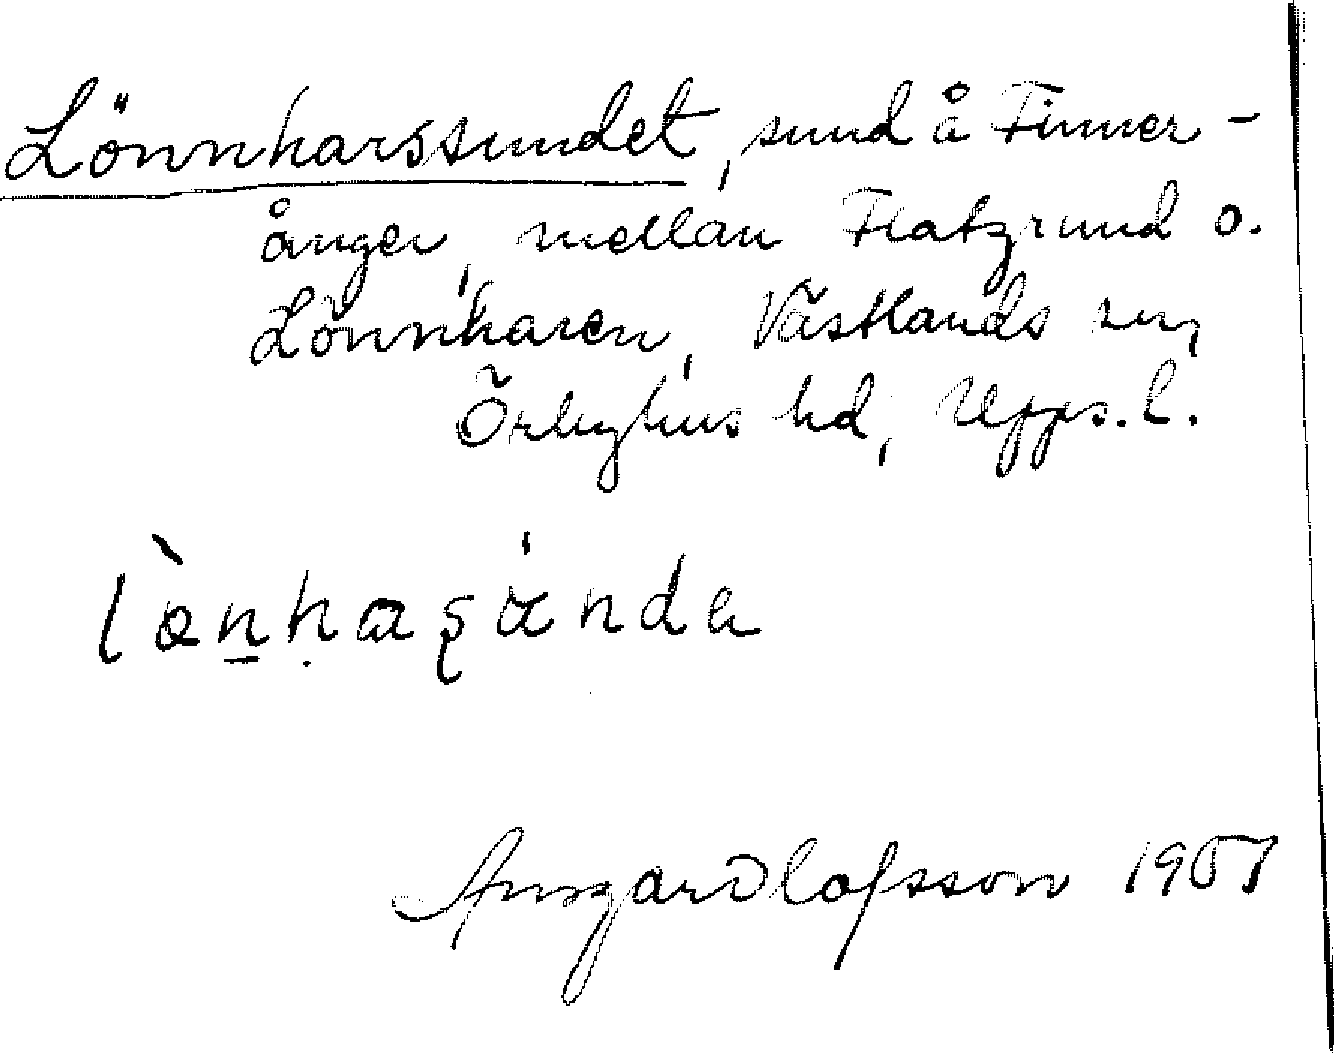 Lönnharssundet, sund å Finner-
ånger, mellan Flatgrund o.
Lönnharen, Västlands sn,
Örbyhus hd, Upps. l.
Ansgar Olofsson 1951